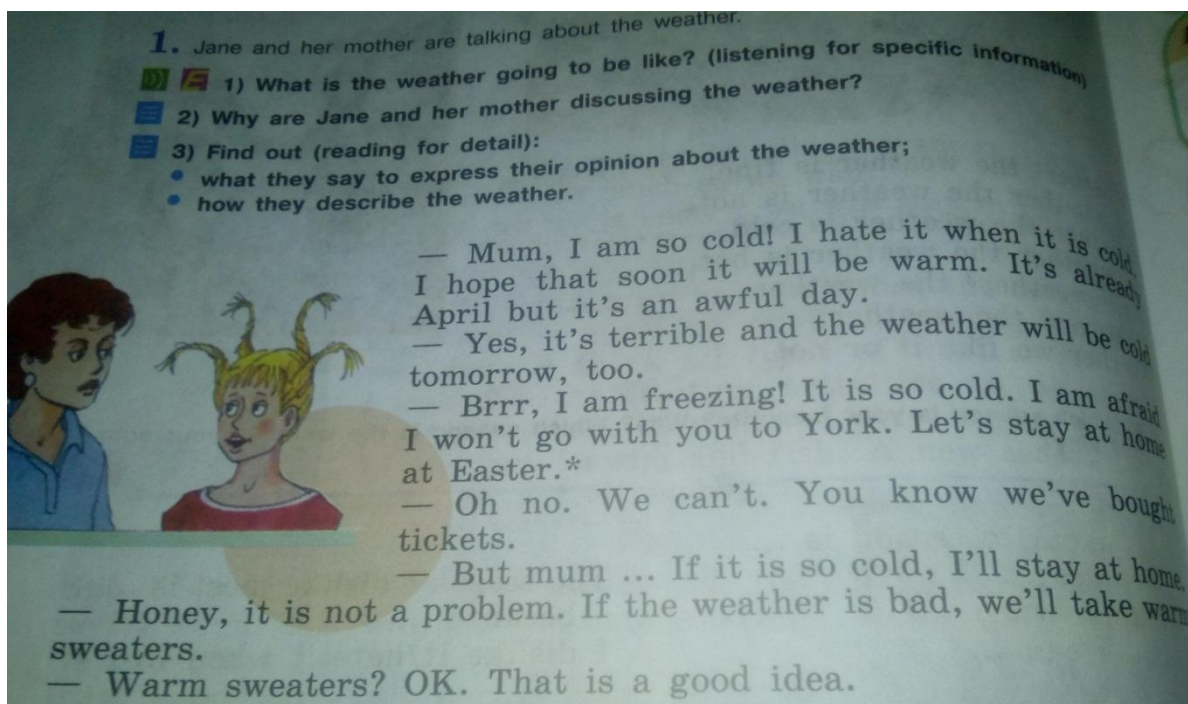 1. Jane and her mother are talking about the weather.
1) What is the weather going to be like? (listening for specific information)
2) Why are Jane and her mother discussing the weather?
3) Find out (reading for detail):
• what they say to express their opinion about the weather;
• how they describe the weather.
— Mum, I am so cold! I hate it when it is cold.
I hope that soon it will be warm. It's already
April but it's an awful day.
— Yes, it's terrible and the weather will be cold
tomorrow, too.
— Brrr, I am freezing! It is so cold. I am afraid
I won't go with you to York. Let's stay at home
at Easter.*
— Oh no. We can't. You know we've bought
tickets.
— But mum ... If it is so cold, I'll stay at home.
— Honey, it is not a problem. If the weather is bad, we'll take warm
sweaters.
— Warm sweaters? OK. That is a good idea.